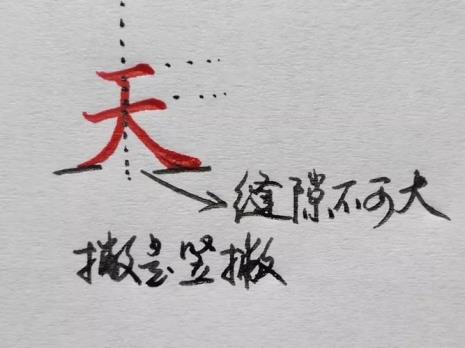 天
缝隙不可大
撇是竖撇